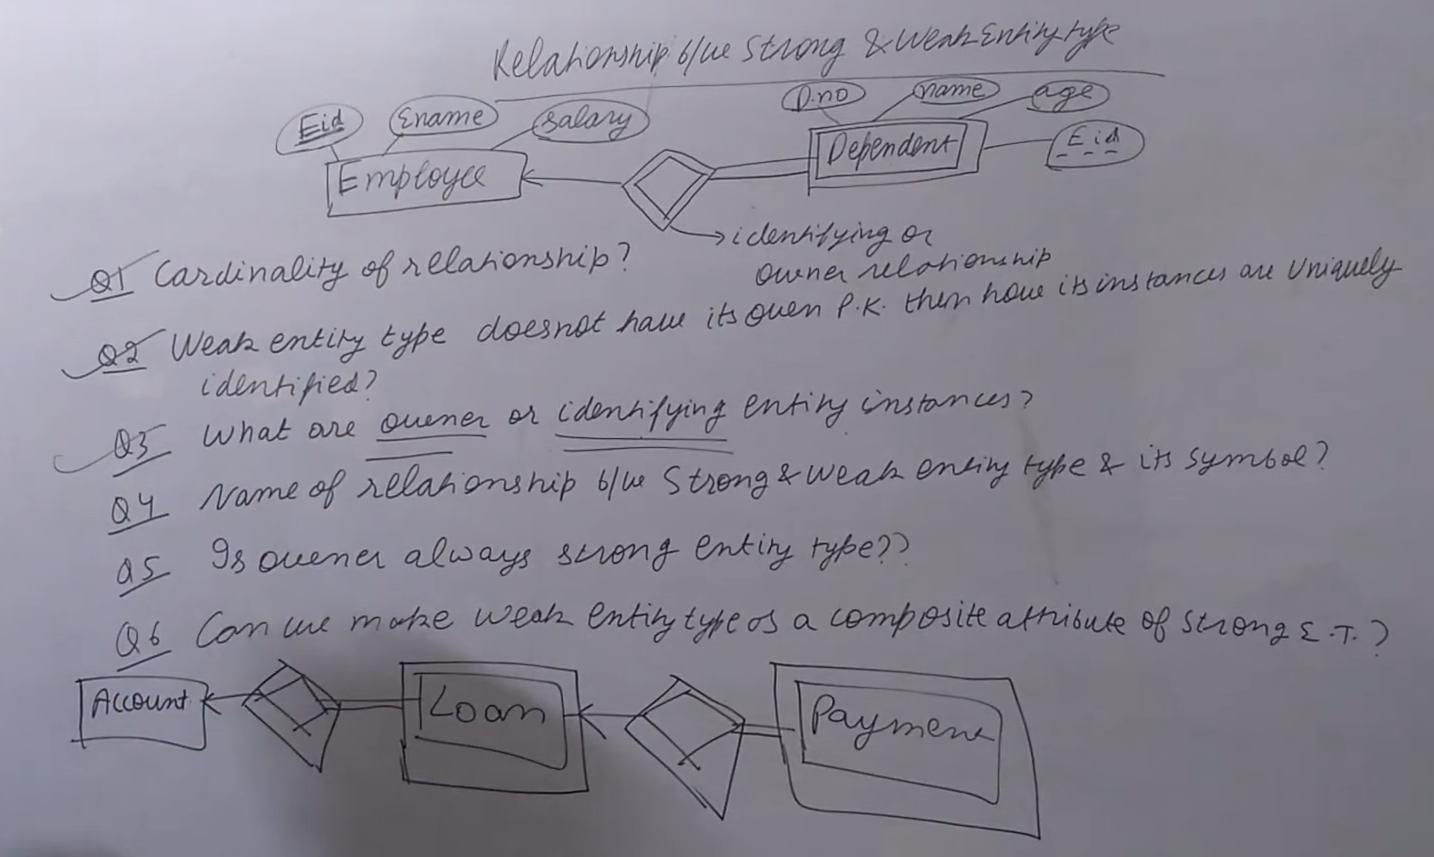 Relationship b/w Strong & Weak Entity type
Eid
Ename
Salary
D.no
name
age
Employee
Dependent
Eid
identifying or
owner relationship
Q1 Cardinality of relationship?
Q2 Weak entity type doesnot have its owen P.K. then how its instances are Uniquely
identified?
Q3 What are owener or identifying entity instances?
Q4 Name of relationship b/w Strong & weak entity type & its symbol?
Q5 Is owener always strong entity type??
Q6 Can we make weak entity type as a composite attribute of strong E.T.?
Account
Loan
Payment